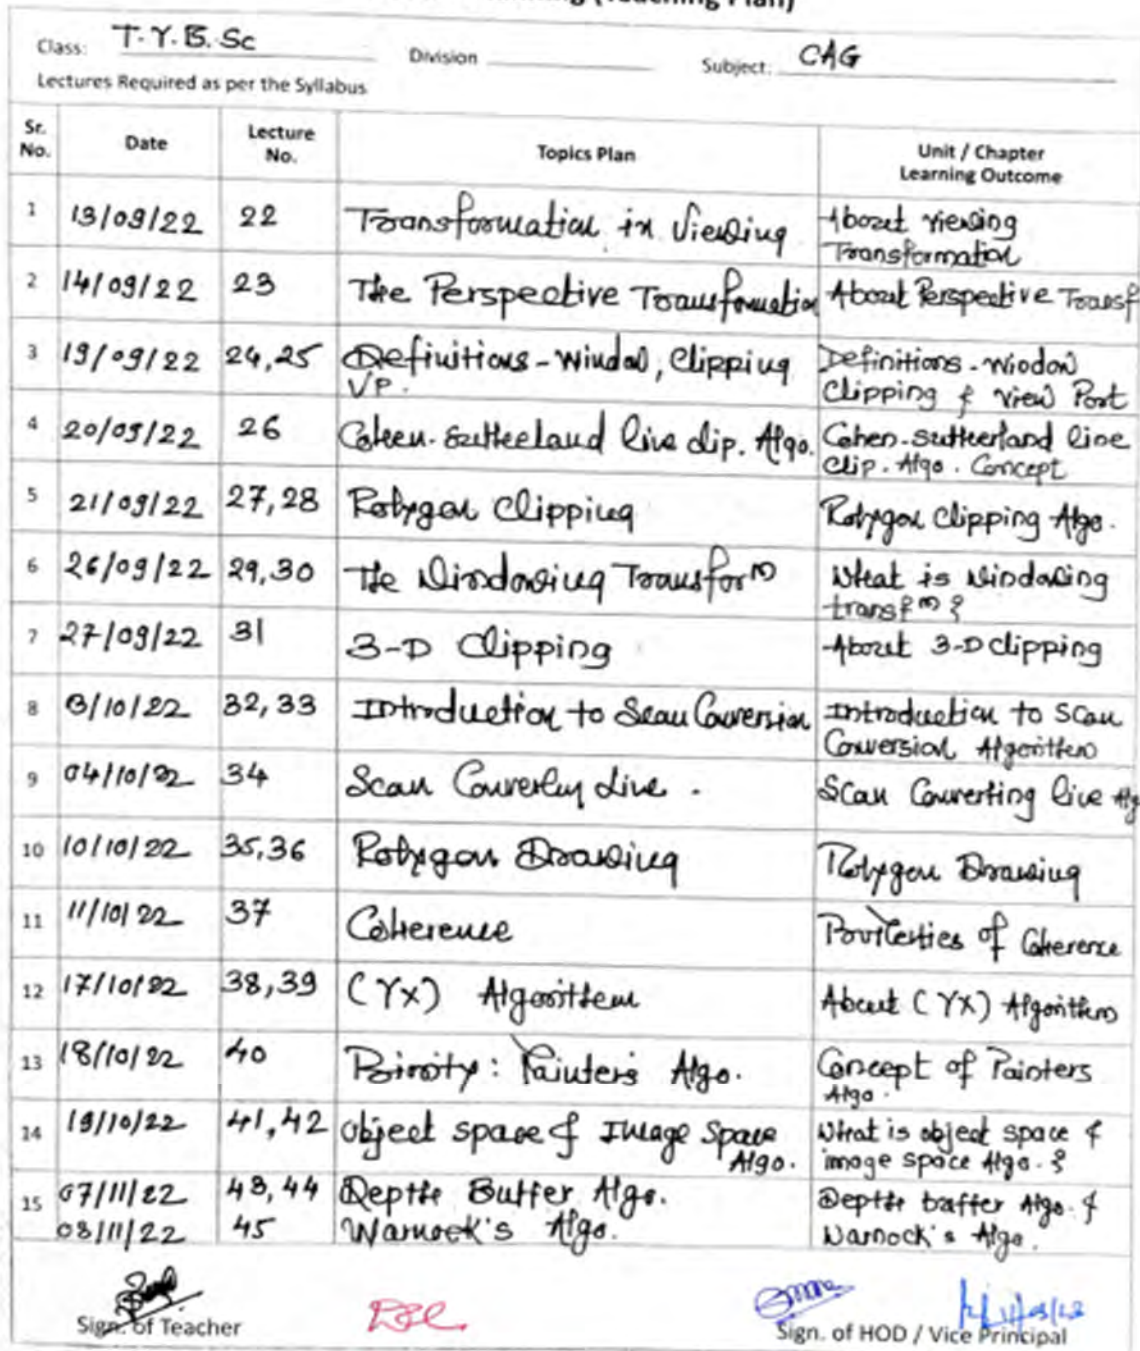 (Teaching Plan)
Class: T.Y.B.Sc Division Subject: CAG
Lectures Required as per the Syllabus
Sr. No. Date Lecture No. Topics Plan Unit / Chapter Learning Outcome
1 13/09/22 22 Transformation in Viewing About viewing Transformation
2 14/09/22 23 The Perspective Transformation About Perspective Transf
3 19/09/22 24,25 Definitions - Window, Clipping VP. Definitions - Window Clipping & View Port
4 20/09/22 26 Cohen-Sutherland line clip. Algo. Cohen-Sutherland line Clip. Algo. Concept
5 21/09/22 27,28 Polygon Clipping Polygon Clipping Algo.
6 26/09/22 29,30 The Windowing Transform What is Windowing transfm ?
7 27/09/22 31 3-D Clipping About 3-D clipping
8 3/10/22 32,33 Introduction to Scan Conversion Introduction to Scan Conversion Algorithm
9 04/10/22 34 Scan Converting Line. Scan Converting line Alg
10 10/10/22 35,36 Polygon Drawing Polygon Drawing
11 11/10/22 37 Coherence Properties of Coherence
12 17/10/22 38,39 (YX) Algorithm About (YX) Algorithm
13 18/10/22 40 Priority: Painters Algo. Concept of Painters Algo.
14 19/10/22 41,42 Object space & Image Space Algo. What is object space & image space Algo. ?
15 07/11/22 43,44 Depth Buffer Algo. Depth buffer Algo. &
08/11/22 45 Warnock's Algo. Warnock's Algo.
Sign. of Teacher Sign. of HOD / Vice Principal